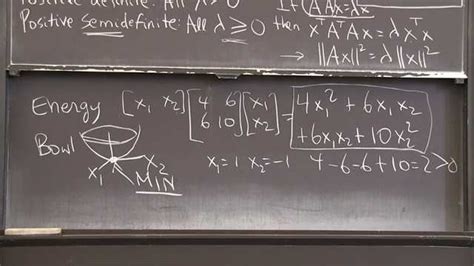 Positive definite: All λ > 0
Positive Semidefinite: All λ ≥ 0
If AᵀAx = λx
then xᵀAᵀAx = λxᵀx
→ ||Ax||² = λ||x||²
Energy [x₁ x₂] [4 6; 6 10] [x₁; x₂] = 4x₁² + 6x₁x₂
+ 6x₁x₂ + 10x₂²
Bowl
x₁ x₂
MIN
x₁=1 x₂=-1 4-6-6+10=2>0